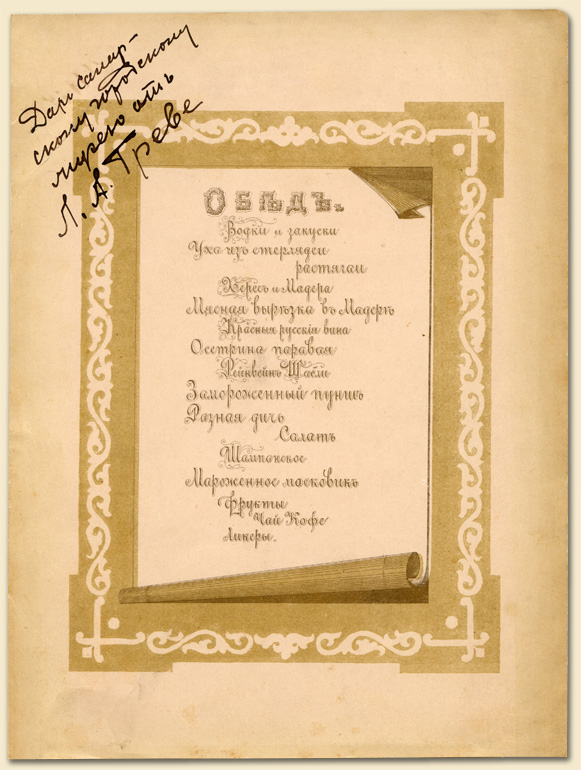 Даръ самар-
скому городскому
музею отъ
Л. А. Греве
ОБѢДЪ.
Водки и закуски
Уха изъ стерлядеи
растягаи
Хересъ и Мадера
Мясная вырѣзка въ Мадерѣ
Красныя русскія вина
Осетрина паравая
Рейнвейнъ Шабли
Замороженный пуншъ
Разная дичь
Салатъ
Шампанское
Мароженное масковикъ
Фрукты
Чай Кофе
Ликеры.